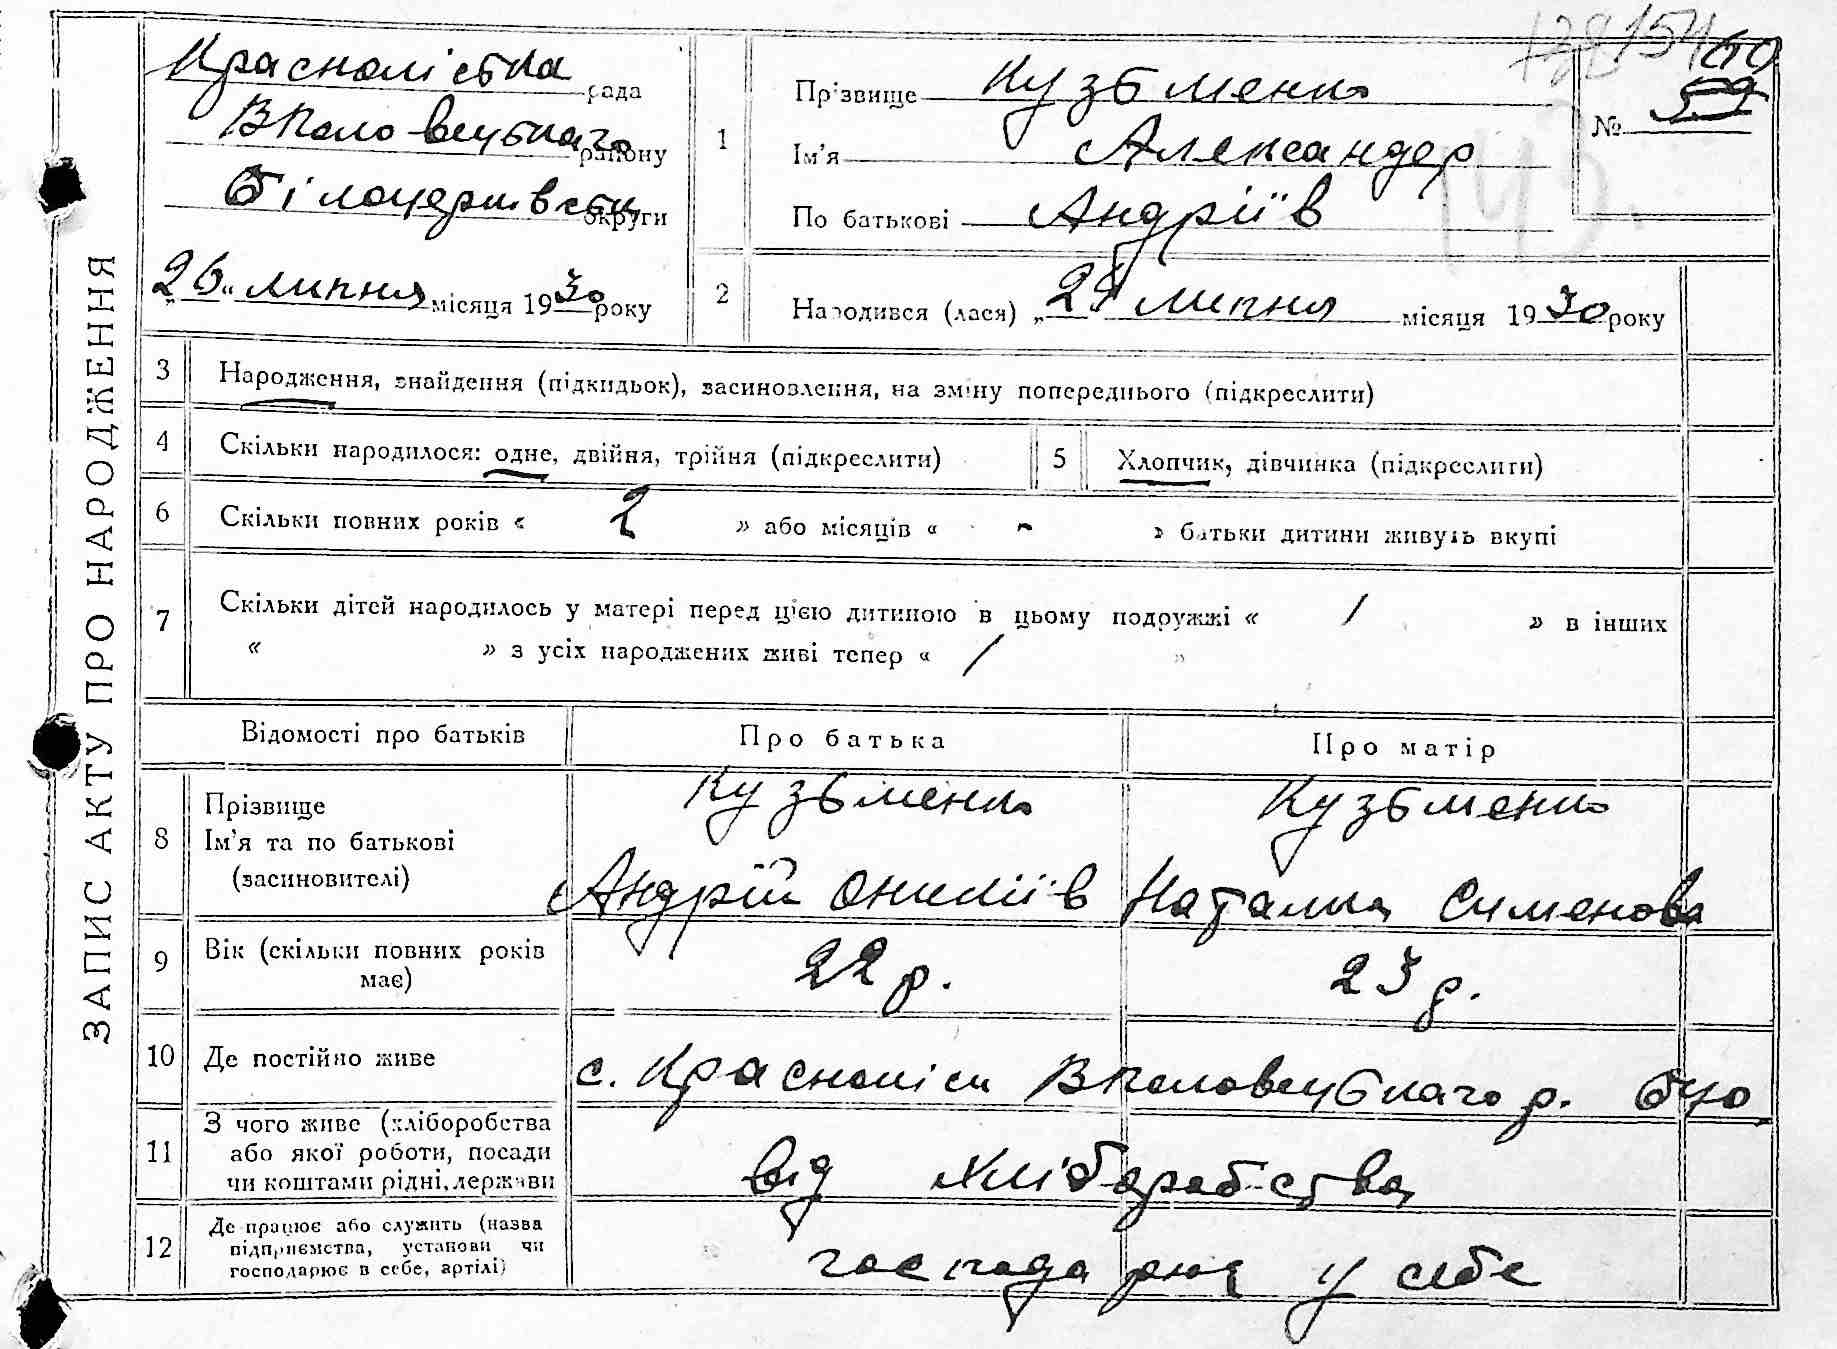 ЗАПИС АКТУ ПРО НАРОДЖЕННЯ
Краснолістка рада
Вполовецького району
Білоцерківськ округи
„26“ липня місяця 1930 року
1
Прізвище Кузьменко
Ім'я Александер
По батькові Андріїв
№ 59
60
143.
2
Народився (лася) „24 липня місяця 1930 року
3 Народження, знайдення (підкидьок), засиновлення, на зміну попереднього (підкреслити)
4 Скільки народилося: одне, двійня, трійня (підкреслити)
5 Хлопчик, дівчинка (підкреслити)
6 Скільки повних років « 2 » або місяців « - » батьки дитини живуть вкупі
7 Скільки дітей народилось у матері перед цією дитиною в цьому подружжі « / » в інших
« » з усіх народжених живі тепер « / »
Відомості про батьків Про батька Про матір
8
Прізвище Кузьменко Кузьменко
Ім'я та по батькові
(засиновителі) Андрій Симонова
9 Вік (скільки повних років має) 22 р. 23 р.
10 Де постійно живе с. Краснолісы Вполовецького р. БЦО
11 З чого живе (хліборобства
або якої роботи, посади
чи коштами рідні, держави
від хліборобства
12 Де працює або служить (назва
підприємства, установи чи
господарює в себе, артілі)
господарює у себе